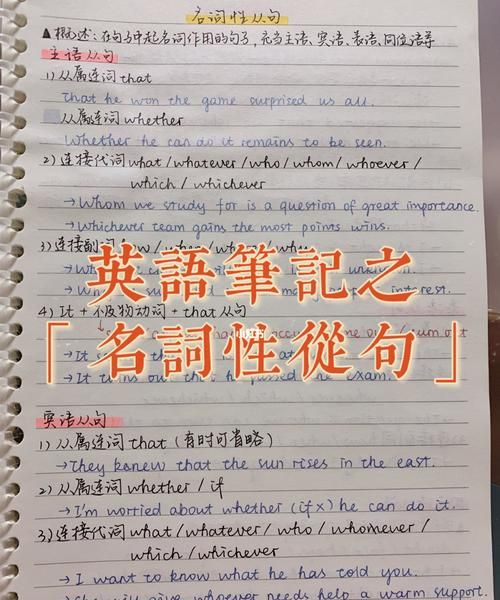 名词性从句
▲概述：在句子中起名词作用的句子，充当主语、宾语、表语、同位语等
主语从句
1) 从属连词 that
That he won the game surprised us all.
从属连词 whether
Whether he can do it remains to be seen.
2) 连接代词 what / whatever / who / whom / whoever /
which / whichever
→ Whom we study for is a question of great importance.
→ Whichever team gains the most points wins.
3) 连接副词
英語筆記之
interest.
4) It + 不及物动词 + that 从句
「名詞性從句」
小红书
→ It
→ It turns out that he passed the exam.
宾语从句
1) 从属连词 that (有时可省略)
→ They knew that the sun rises in the east.
2) 从属连词 whether / if
→ I'm worried about whether (if×) he can do it.
3) 连接代词 what / whatever / who / whomever /
which / whichever
→ I want to know what he has told you.
→ She will give whoever needs help a warm support.